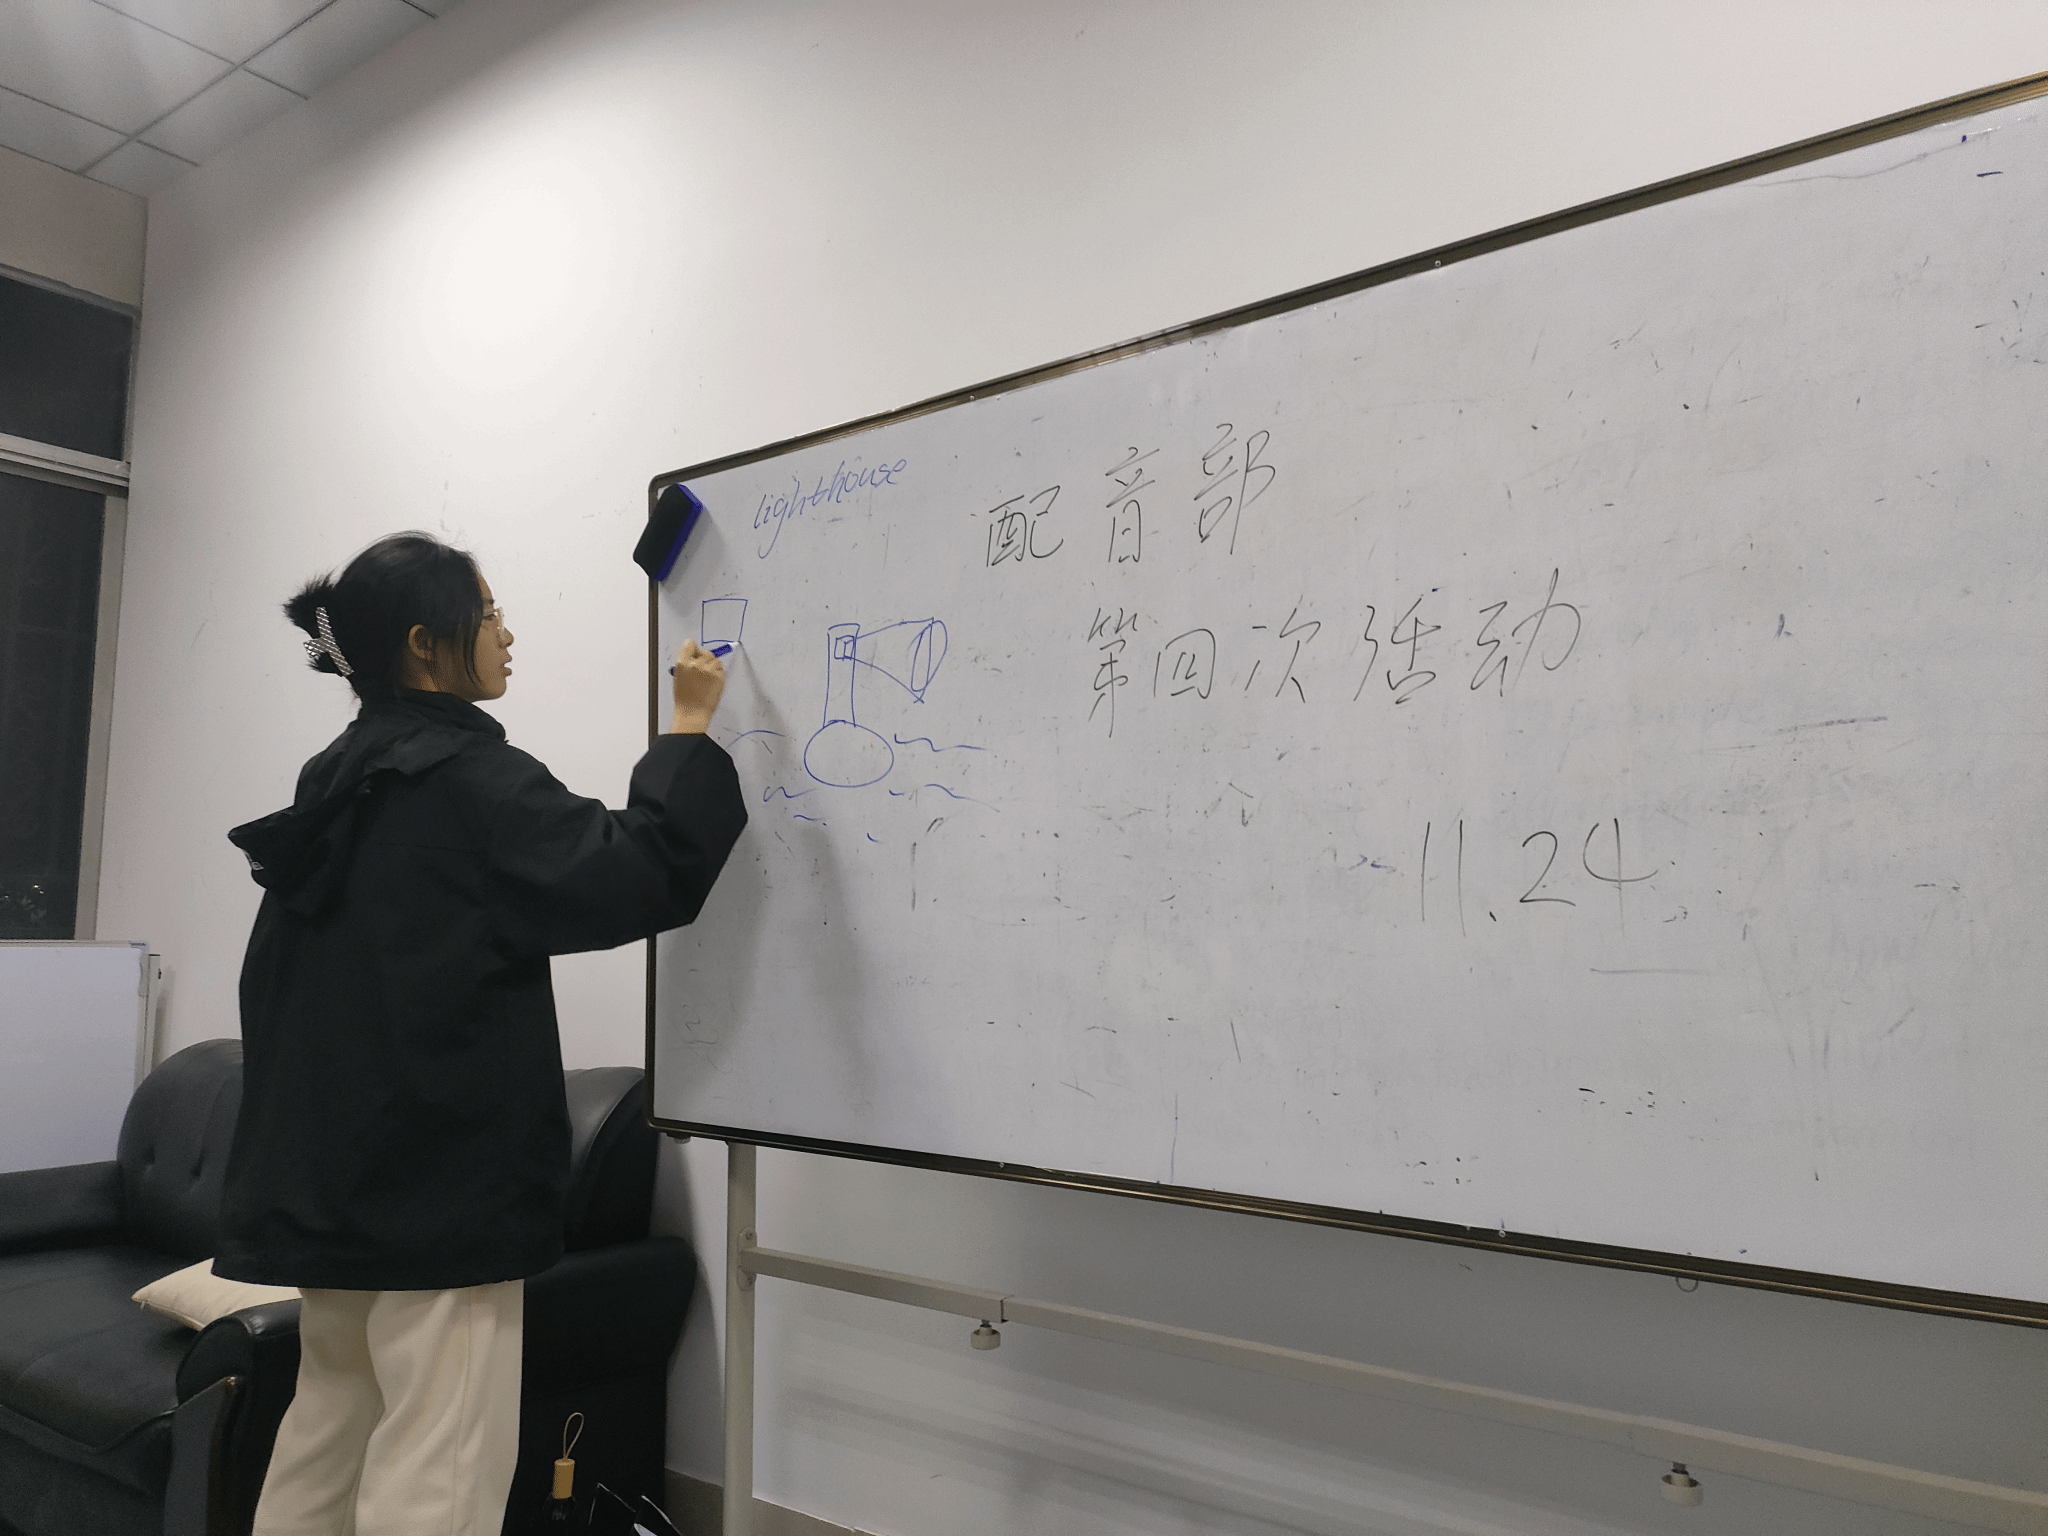 lighthouse
配音部
第四次活动
11.24